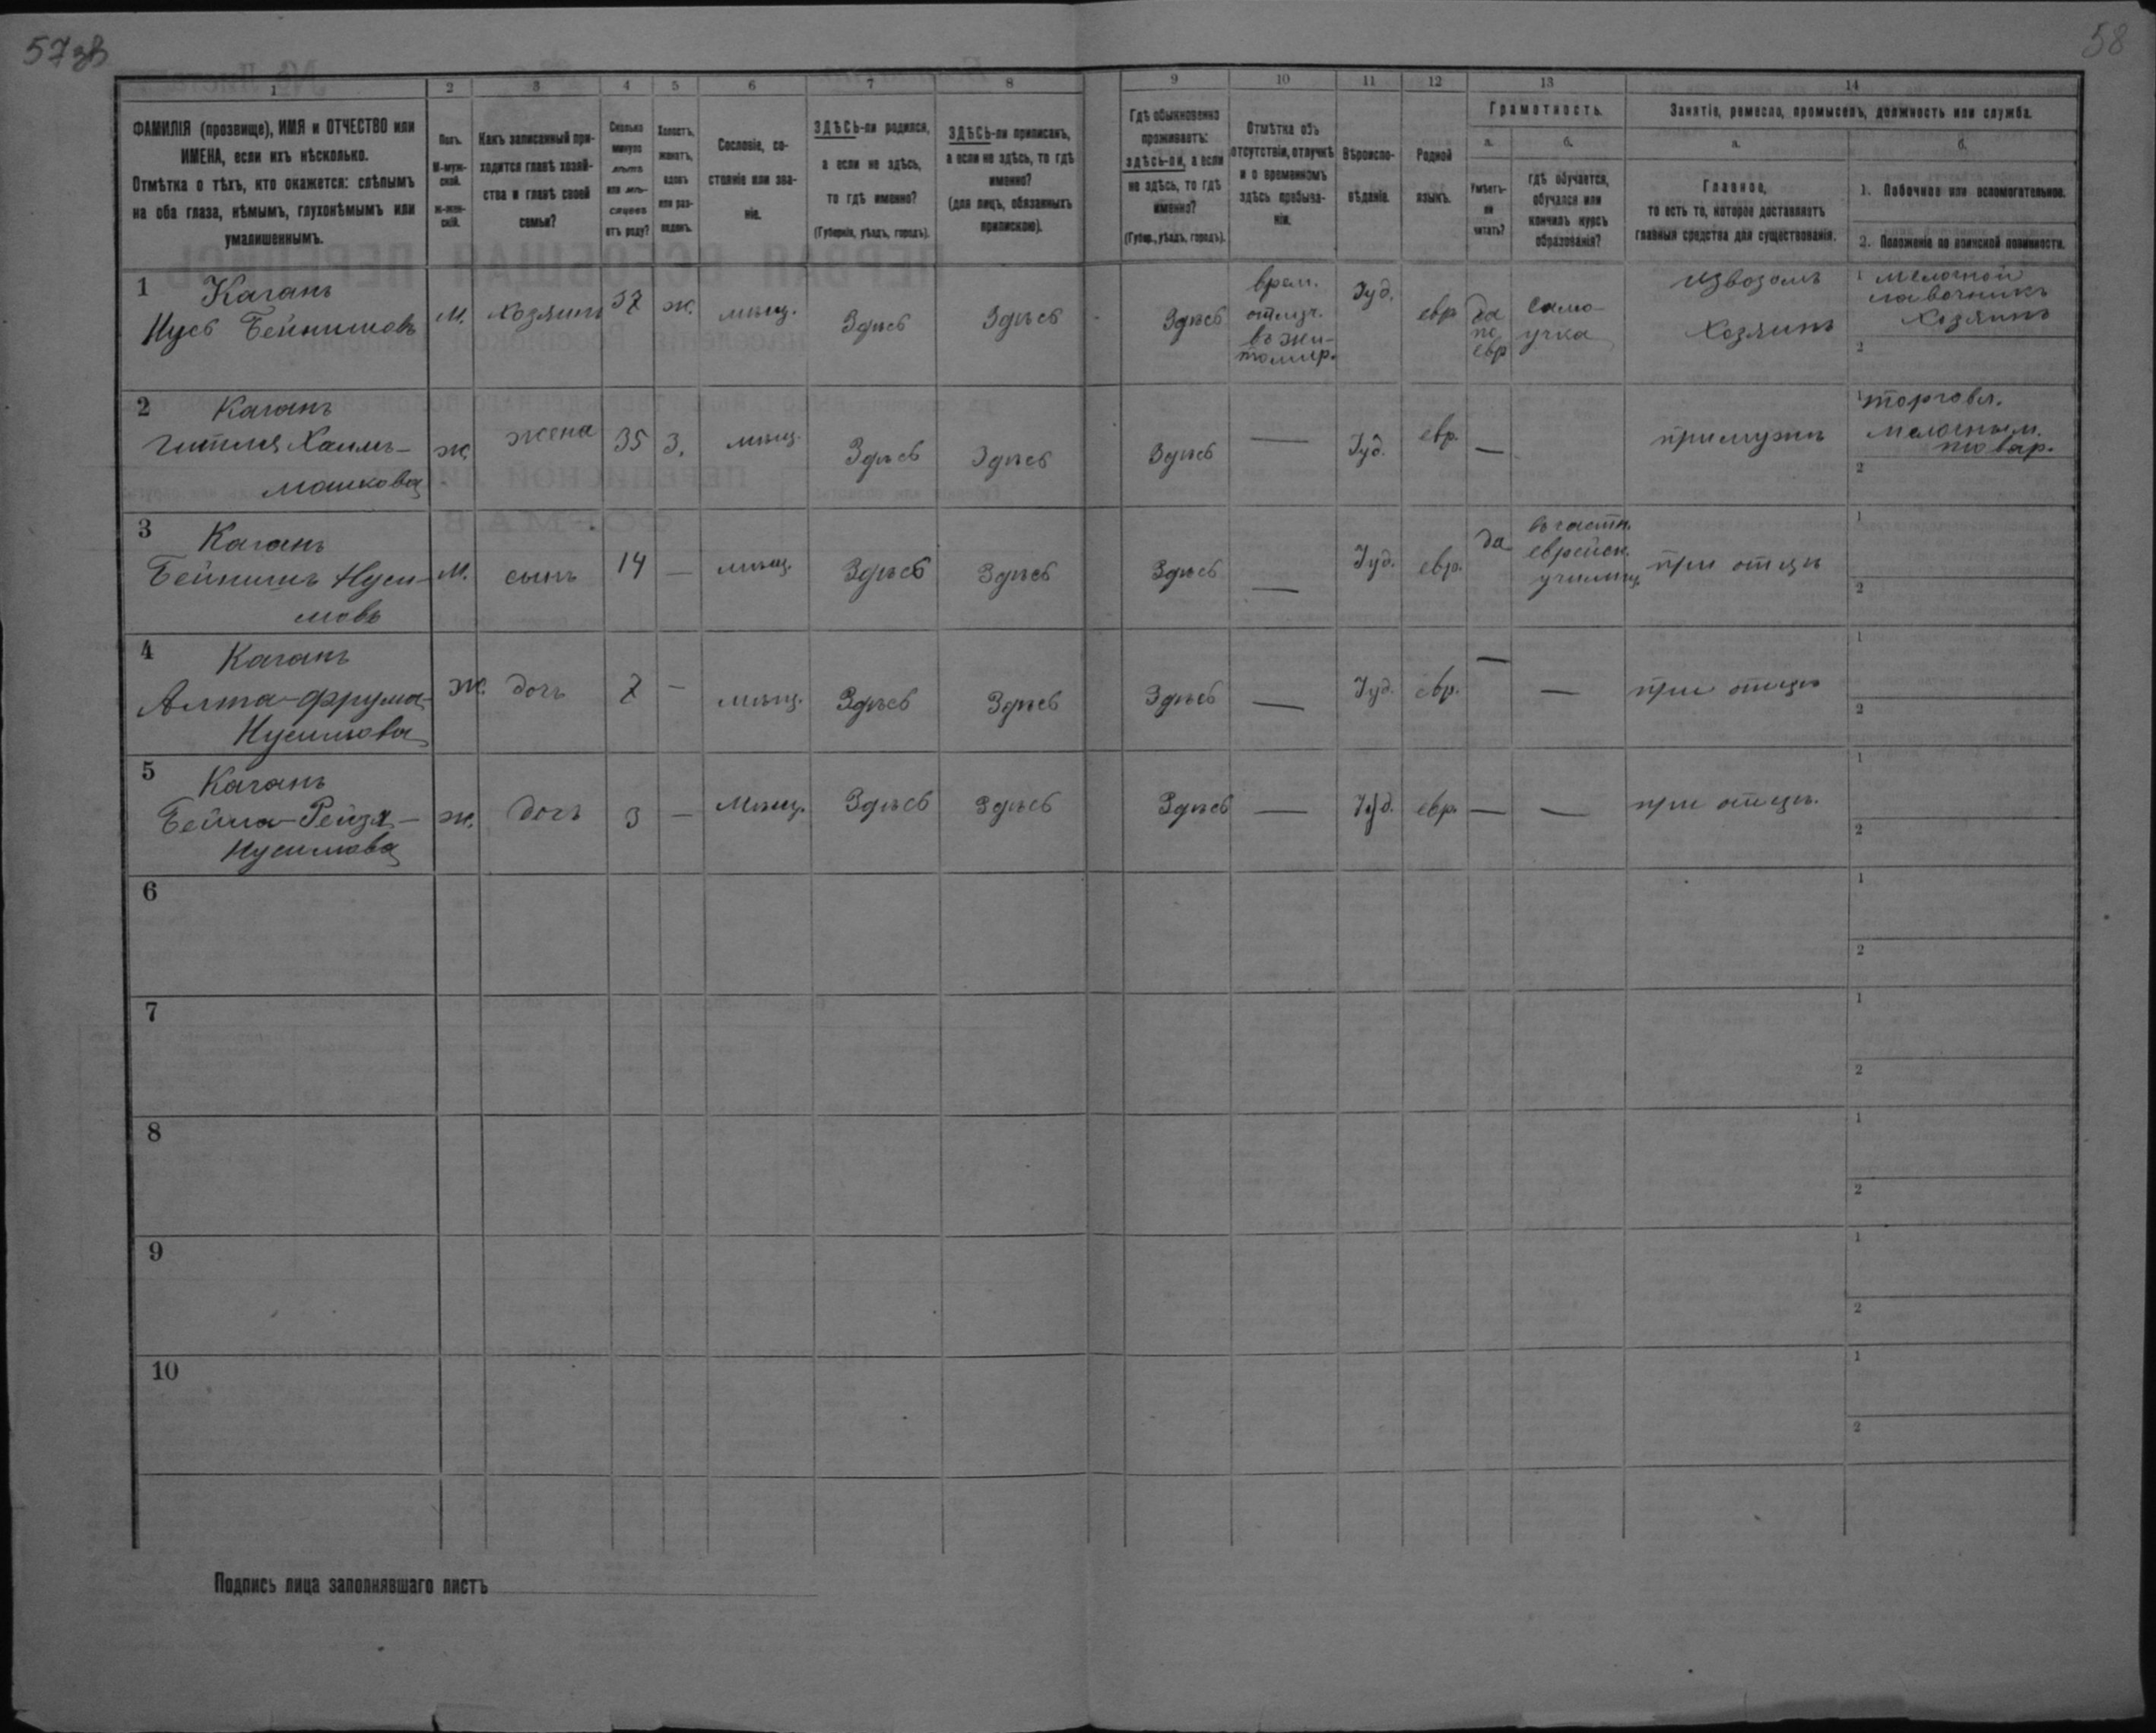 57зв
58
1 2 3 4 5 6 7 8 9 10 11 12 13 14
ФАМИЛІЯ (прозвище), ИМЯ и ОТЧЕСТВО или
ИМЕНА, если ихъ нѣсколько.
Отмѣтка о тѣхъ, кто окажется: слѣпымъ
на оба глаза, нѣмымъ, глухонѣмымъ или
умалишеннымъ.
Полъ.
М-муж-
ской.
Ж-жен-
скій.
Какъ записанный при-
ходится главѣ хозяй-
ства и главѣ своей
семьи?
Сколько
минуло
лѣтъ
или мѣ-
сяцевъ
отъ роду?
Холостъ,
женатъ,
вдовъ
или раз-
веденъ.
Сословіе, со-
стояніе или зва-
ніе.
ЗДѢСЬ-ли родился,
а если не здѣсь,
то гдѣ именно?
(Губернія, уѣздъ, городъ).
ЗДѢСЬ-ли приписанъ,
а если не здѣсь, то гдѣ
именно?
(для лицъ, обязанныхъ
припискою).
Гдѣ обыкновенно
проживаетъ:
здѣсь-ли, а если
не здѣсь, то гдѣ
именно?
(Губер., уѣздъ, городъ).
Отмѣтка объ
отсутствіи, отлучкѣ
и о временномъ
здѣсь пребыва-
ніи.
Вѣроиспо-
вѣданіе.
Родной
языкъ.
Грамотность.
а.
Умѣетъ-
ли
читать?
б.
гдѣ обучается,
обучался или
кончилъ курсъ
образованія?
Занятіе, ремесло, промыселъ, должность или служба.
а.
Главное,
то есть то, которое доставляетъ
главныя средства для существованія.
б.
1. Побочное или вспомогательное.
2. Положеніе по воинской повинности.
1 Каганъ
Нусь Бейнишовъ
м. хозяинъ 37 ж. мѣщ. Здѣсь Здѣсь Здѣсь
врем.
отлуч.
въ Жи-
томир.
Іуд. евр
да
по
евр
само-
учка
извозомъ
Хозяинъ
1 мелочной
лавочникъ
Хозяинъ
2
2 Каганъ
Гитля Хаимъ-
Мошкова
ж жена 35 З. мѣщ. Здѣсь Здѣсь Здѣсь — Іуд. евр. — при мужѣ
1 торговл.
мелочным.
товар.
2
3 Каганъ
Бейнишъ Нуси-
мовъ
м. сынъ 14 — мѣщ. Здѣсь Здѣсь Здѣсь — Іуд. евр. да
въ частн.
еврейск.
училищ.
при отцѣ
1
2
4 Каганъ
Алта-Фрума-
Нусимова
ж. дочь 7 — мѣщ. Здѣсь Здѣсь Здѣсь — Іуд. евр. — — при отцѣ
1
2
5 Каганъ
Бейла-Рейзя-
Нусимова
ж. дочь 3 — Мѣщ. Здѣсь Здѣсь Здѣсь — Іуд. евр. — — при отцѣ.
1
2
6
1
2
7
1
2
8
1
2
9
1
2
10
1
2
Подпись лица заполнявшаго листъ